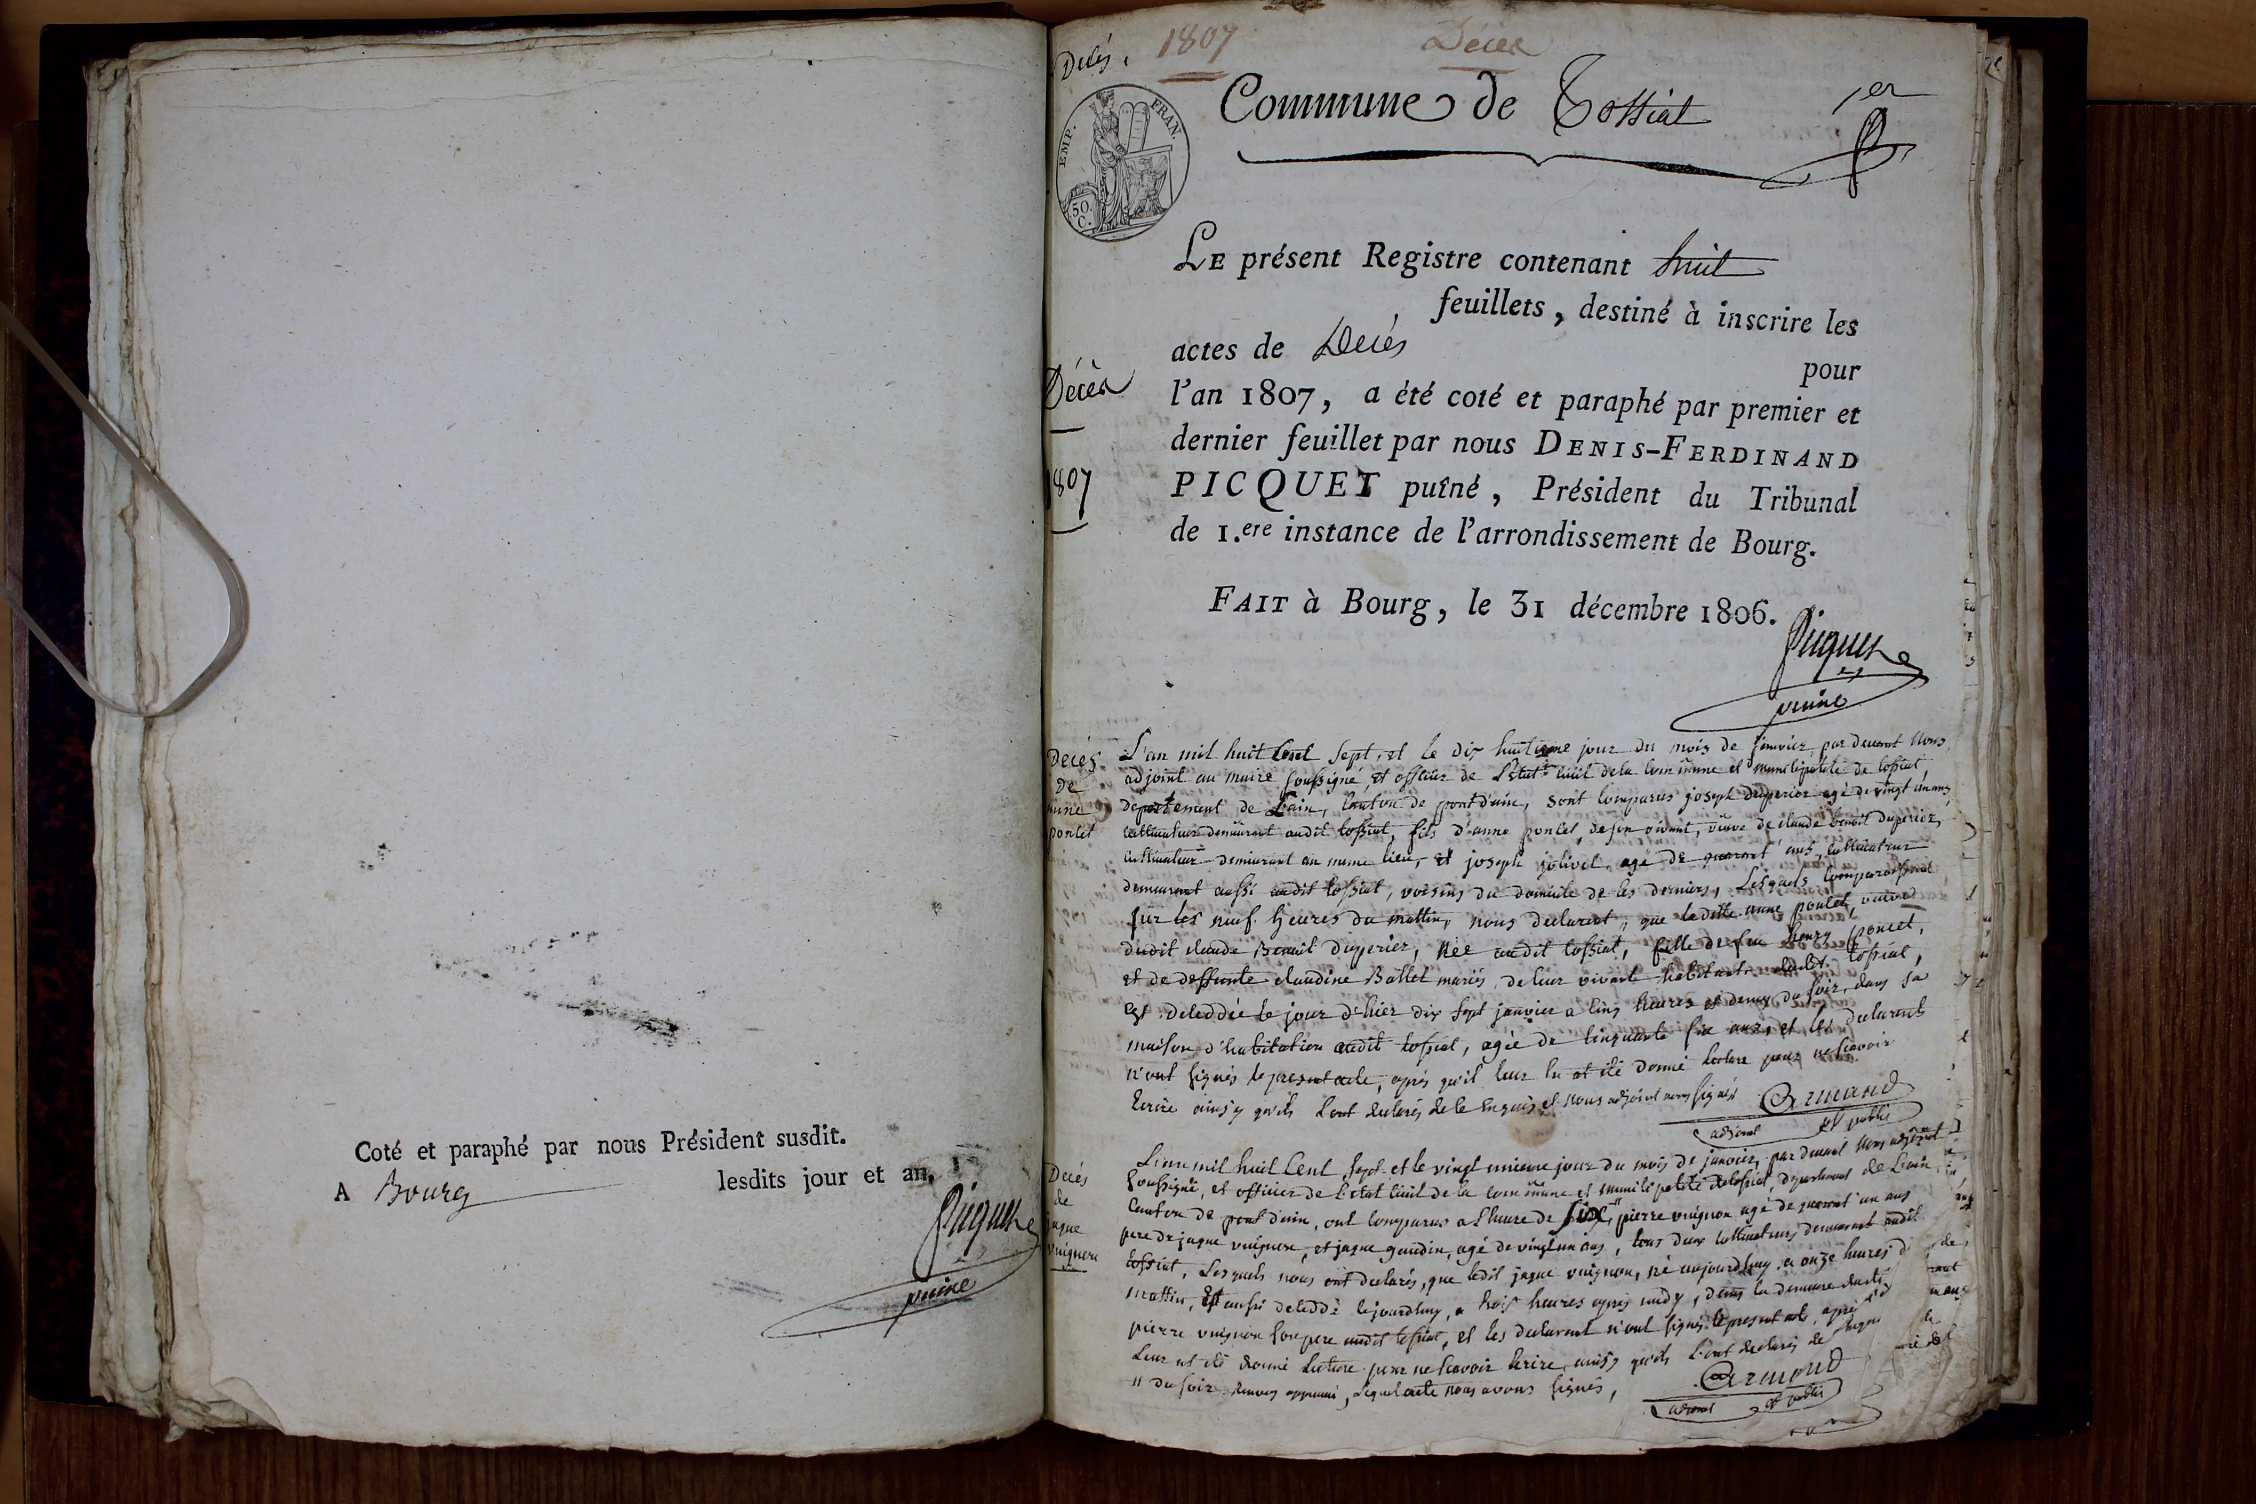 Coté et paraphé par nous Président susdit.
A Bourg lesdits jour et an,
Picquet
puiné
Decés.
1807
Décès
Commune de Tossiat
1er
EMP. FRAN
50.
C.
LE présent Registre contenant huit
feuillets, destiné à inscrire les
actes de Decés
pour
l'an 1807, a été coté et paraphé par premier et
dernier feuillet par nous DENIS-FERDINAND
PICQUET puîné, Président du Tribunal
de 1.ere instance de l'arrondissement de Bourg.
FAIT à Bourg, le 31 décembre 1806.
Picquet
puiné
Décès
1807
Decés
de
anne
poncet
L'an mil huit Cent sept, et le dix huitieme jour du mois de janvier par devant Nous
adjoint au maire soussigné, et officier de L'etat Civil de la Commune et municipalité de tossiat,
departement de Lain, Canton de pont d'ain, sont Comparus joseph Duperier agé de vingt un ans,
Cultivateur demeurant audit tossiat, fils d'anne poncet, de son vivant, veuve de claude benoit Duperier,
Cultivateur demeurant au meme lieu, et joseph jolivet agé de quarant ans, Cultivateur
demeurant aussi audit tossiat, voisins du domicile de Ces derniers, Lesquels Comparoissant
sur les neuf heures du mattin, nous declarent, que laditte anne poncet, veuve
dudit claude Benoit Duperier, Née audit tossiat, fille de feu henry poncet,
et de deffunte claudine Ballet mariés, de leur vivant habitants dudit tossiat,
est deceddée le jour d'hier dix sept janvier a Cinq heures et demy du soir, dans sa
maison d'habitation audit tossiat, agée de Cinquante six ans, et les declarants
n'ont signés le present acte, après qu'il leur en at été donné lecture pour ne scavoir
Ecrire ainsy qu'ils L'ont declarés de ce Enquis et nous adjoint avons signés Armand
adjoint et public
Decés
de
jaque
vuignon
L'an mil huit Cent sept et le vingt unieme jour du mois de janvier, par devant Nous adjoint
soussigné, et officier de L'etat Civil de la Commune et municipalité de tossiat, departement de Lain,
Canton de pont d'ain, ont Comparus a L'heure de six" pierre vuignon agé de quarant un ans
pere de jaque vuignon, et jaque gaudin, agé de vingt un ans, tous deux Cultivateurs demeurant audit
tossiat, Lesquels nous ont declarés, que ledit jaque vuignon, né aujourdhuy a onze heures d
mattin, Est aussi deceddé cejourdhuy, a trois heures après midy, dans la demeure dudit
pierre vuignon son pere audit tossiat, et les declarant n'ont signés le present acte, après
Leur at été donné Lecture pour ne scavoir Ecrire, ainsy qu'ils L'ont declarés de
" du soir Renvoy approuvé, Lequel acte nous avons signés,
Armand
adjoint et public